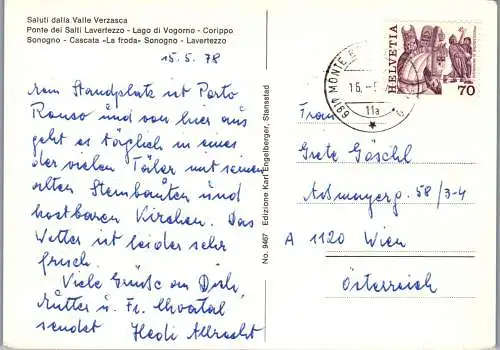 Saluti dalla Valle Verzasca
Ponte dei Salti Lavertezzo - Lago di Vogorno - Corippo
Sonogno - Cascata «La froda» Sonogno - Lavertezzo
15.5.78
Standplatz ist Porto
Ronso und von hier aus
geht es täglich in eines
der vielen Täler mit seinen
alten Steinbauten und
kostbaren Kirchen. Das
Wetter ist leider sehr
frisch.
Viele Grüße an Dich,
Mutter u. Fr.
sendet Hedi Albrecht
No. 9467 Edizione Karl Engelberger, Stansstad
HELVETIA
70
11a
Frau
Grete Göschl
Aßmayerg. 58/3-4
A 1120 Wien
Österreich